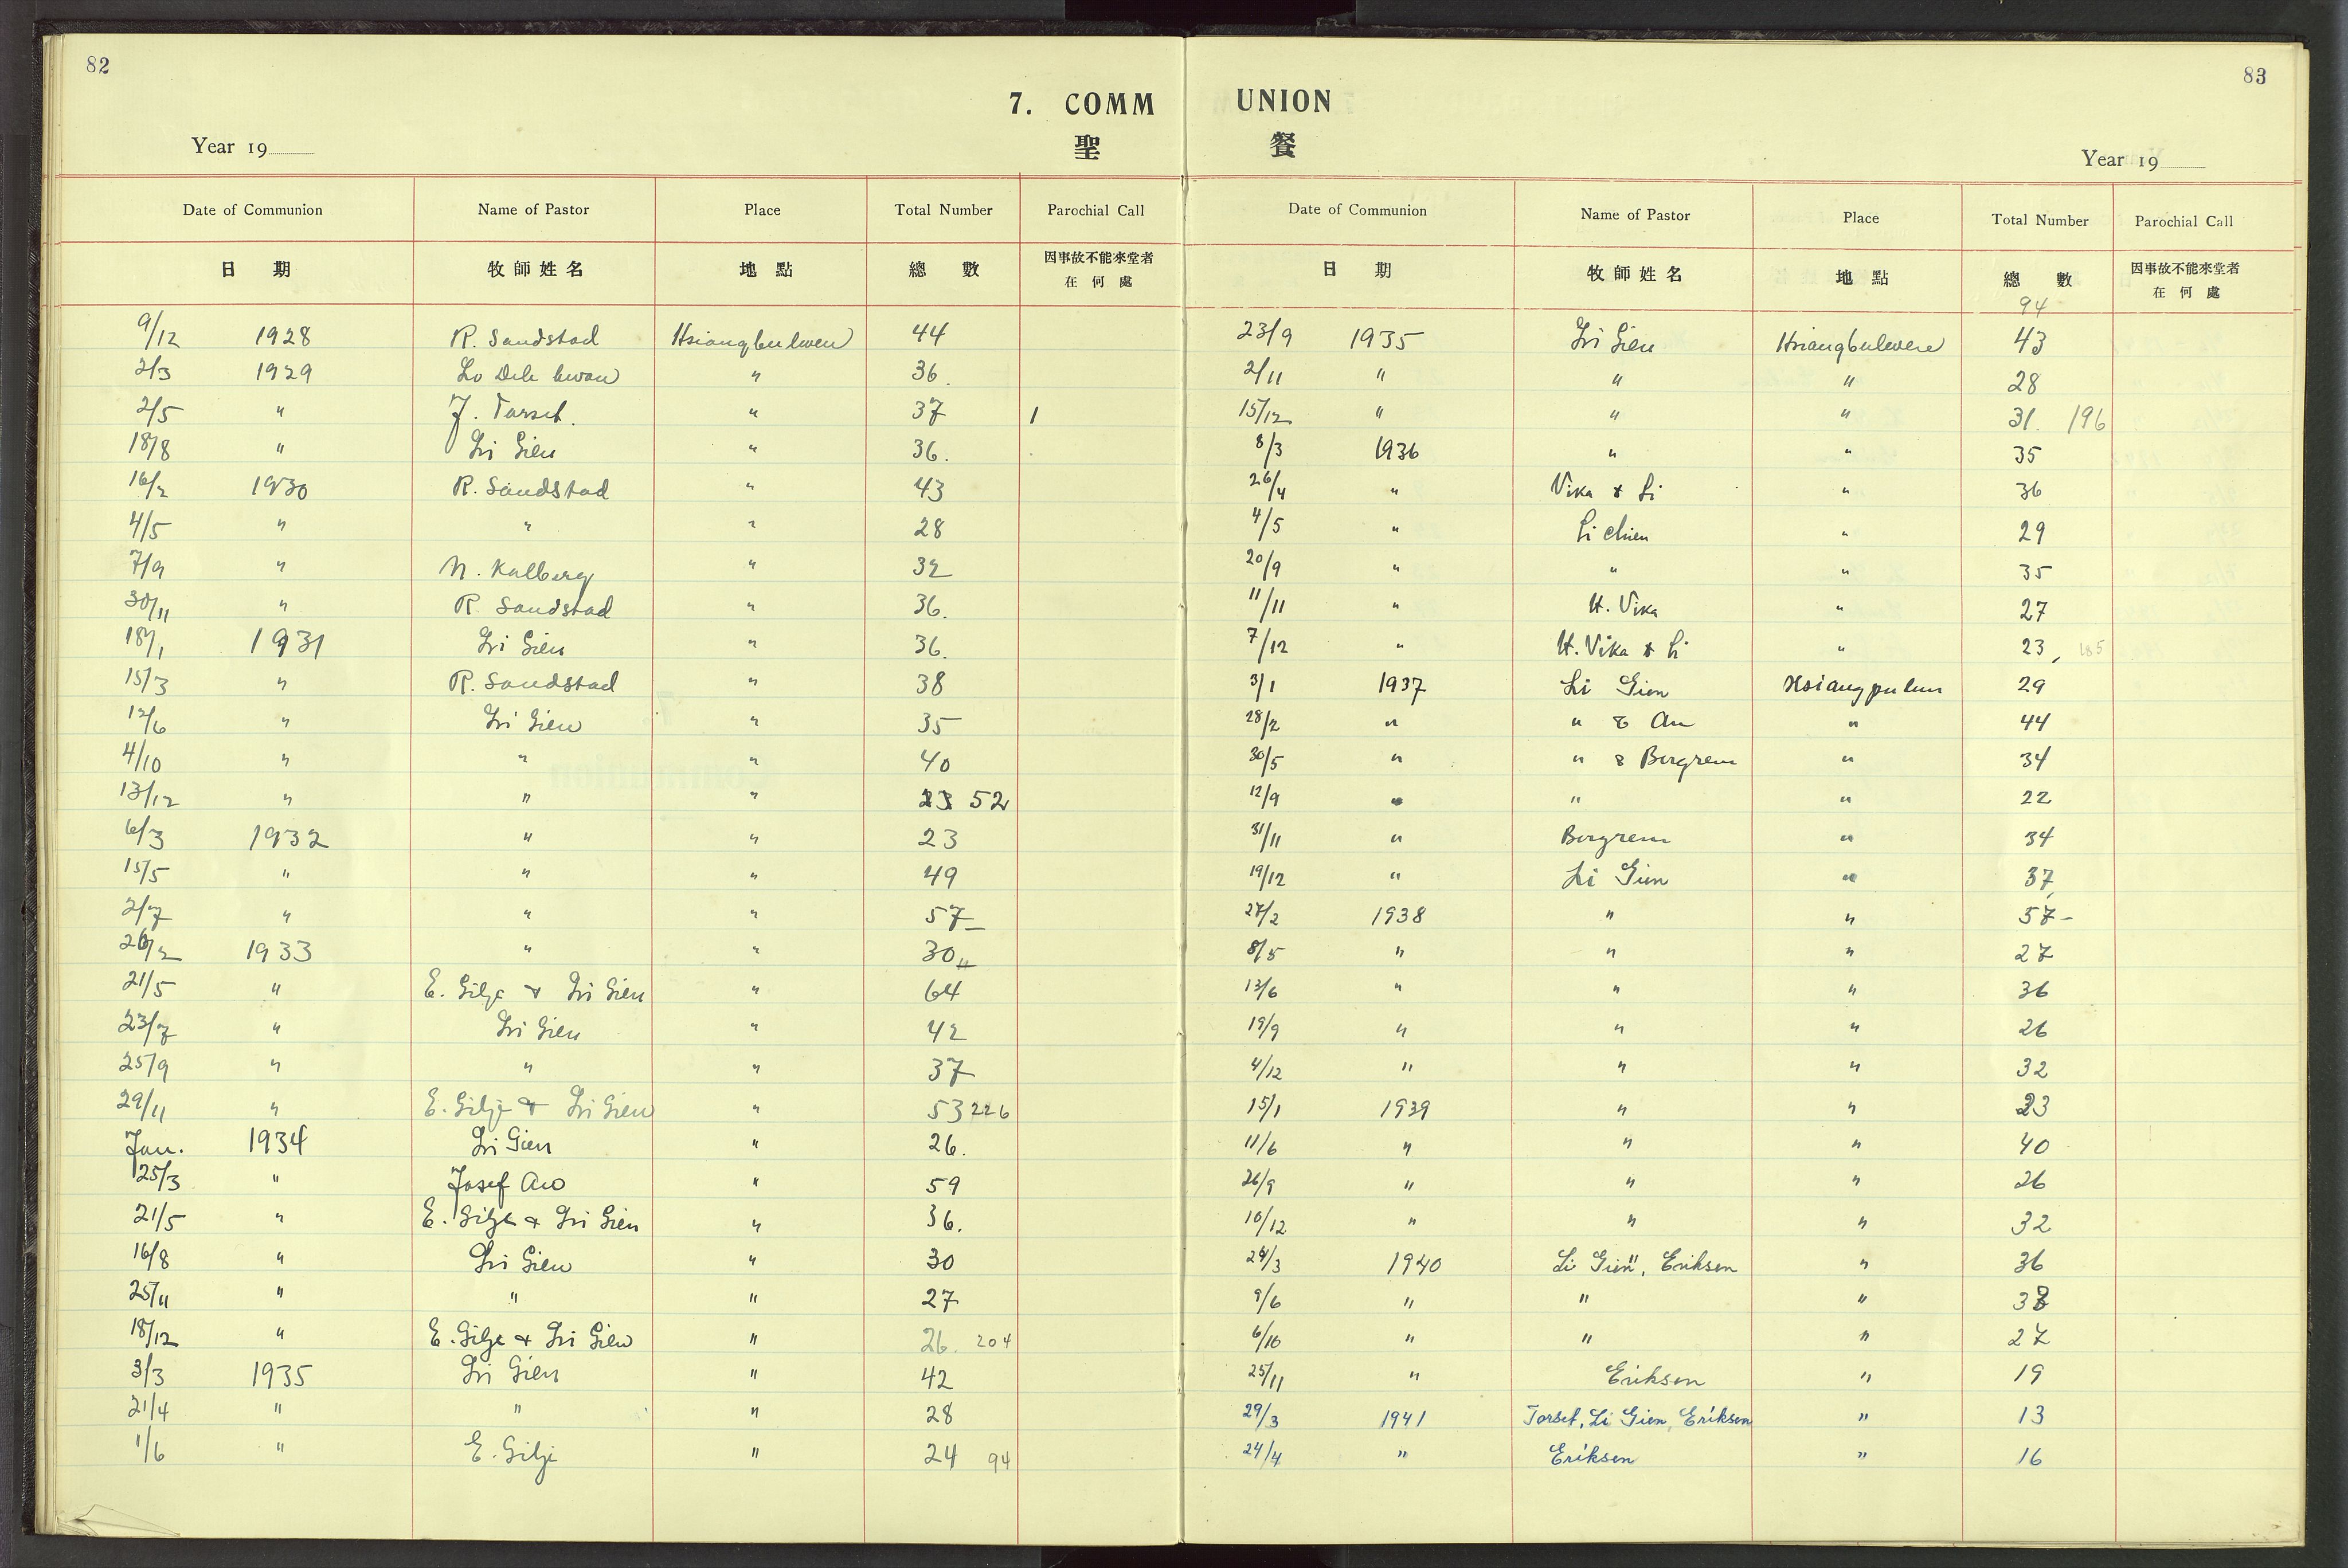 82
7. COMM
聖
Year 19
Date of Communion Name of Pastor Place Total Number Parochial Call
日 期 牧師姓名 地點 總數 因事故不能來堂者
在何處
9/12 1928 R. Sandstad 44
2/3 1929 36.
2/5 " J. Torset. " 37 1
18/8 " Li Gien " 36.
16/2 1930 R. Sandstad " 43
4/5 " " " 28
7/9 " N. Kalberg " 32
30/11 " R. Sandstad " 36.
18/1 1931 Li Gien " 36.
15/3 " R. Sandstad " 38
12/6 " Li Gien " 35
4/10 " " " 40
13/12 " " " 23 52
6/3 1932 " " 23
15/5 " " " 49
2/7 " " " 57
26/2 1933 " " 30
21/5 " E. Gilje + Li Gien " 64
23/7 " Li Gien " 42
25/9 " " " 37
29/11 " E. Gilje + Li Gien " 53 226
Jan. 1934 Li Gien " 26.
25/3 " Josef Aio " 59
21/5 " E. Gilje + Li Gien " 36.
16/8 " Li Gien " 30
25/11 " " " 27
18/12 " E. Gilje + Li Gien " 26. 204
3/3 1935 Li Gien " 42
21/4 " " " 28
1/6 " E. Gilje " 24 94
83
UNION
餐
Year 19
Date of Communion Name of Pastor Place Total Number Parochial Call
日 期 牧師姓名 地點 總數 因事故不能來堂者
在何處
94
23/9 1935 Li Gien 43
2/11 " " " 28
15/12 " " " 31. 196
8/3 1936 " " 35
26/4 " Vika & Li " 36
4/5 " Li Chien " 29
20/9 " " " 35
11/11 " H. Vika " 27
7/12 " H. Vika & Li " 23, 185
3/1 1937 Li Gien Hsiangpulun 29
28/2 " " & An " 44
30/5 " " & Borgrem " 34
12/9 " " " 22
31/11 " Borgrem " 34
19/12 " Li Gien " 37
27/2 1938 " " 57-
8/5 " " " 27
13/6 " " " 36
19/9 " " " 26
4/12 " " " 32
15/1 1939 " " 23
11/6 " " " 40
26/9 " " " 26
10/12 " " " 32
24/3 1940 Li Gien, Eriksen " 36
9/6 " " " 38
6/10 " " " 27
25/11 " Eriksen " 19
29/3 1941 Torset, Li Gien, Eriksen " 13
24/4 " Eriksen " 16